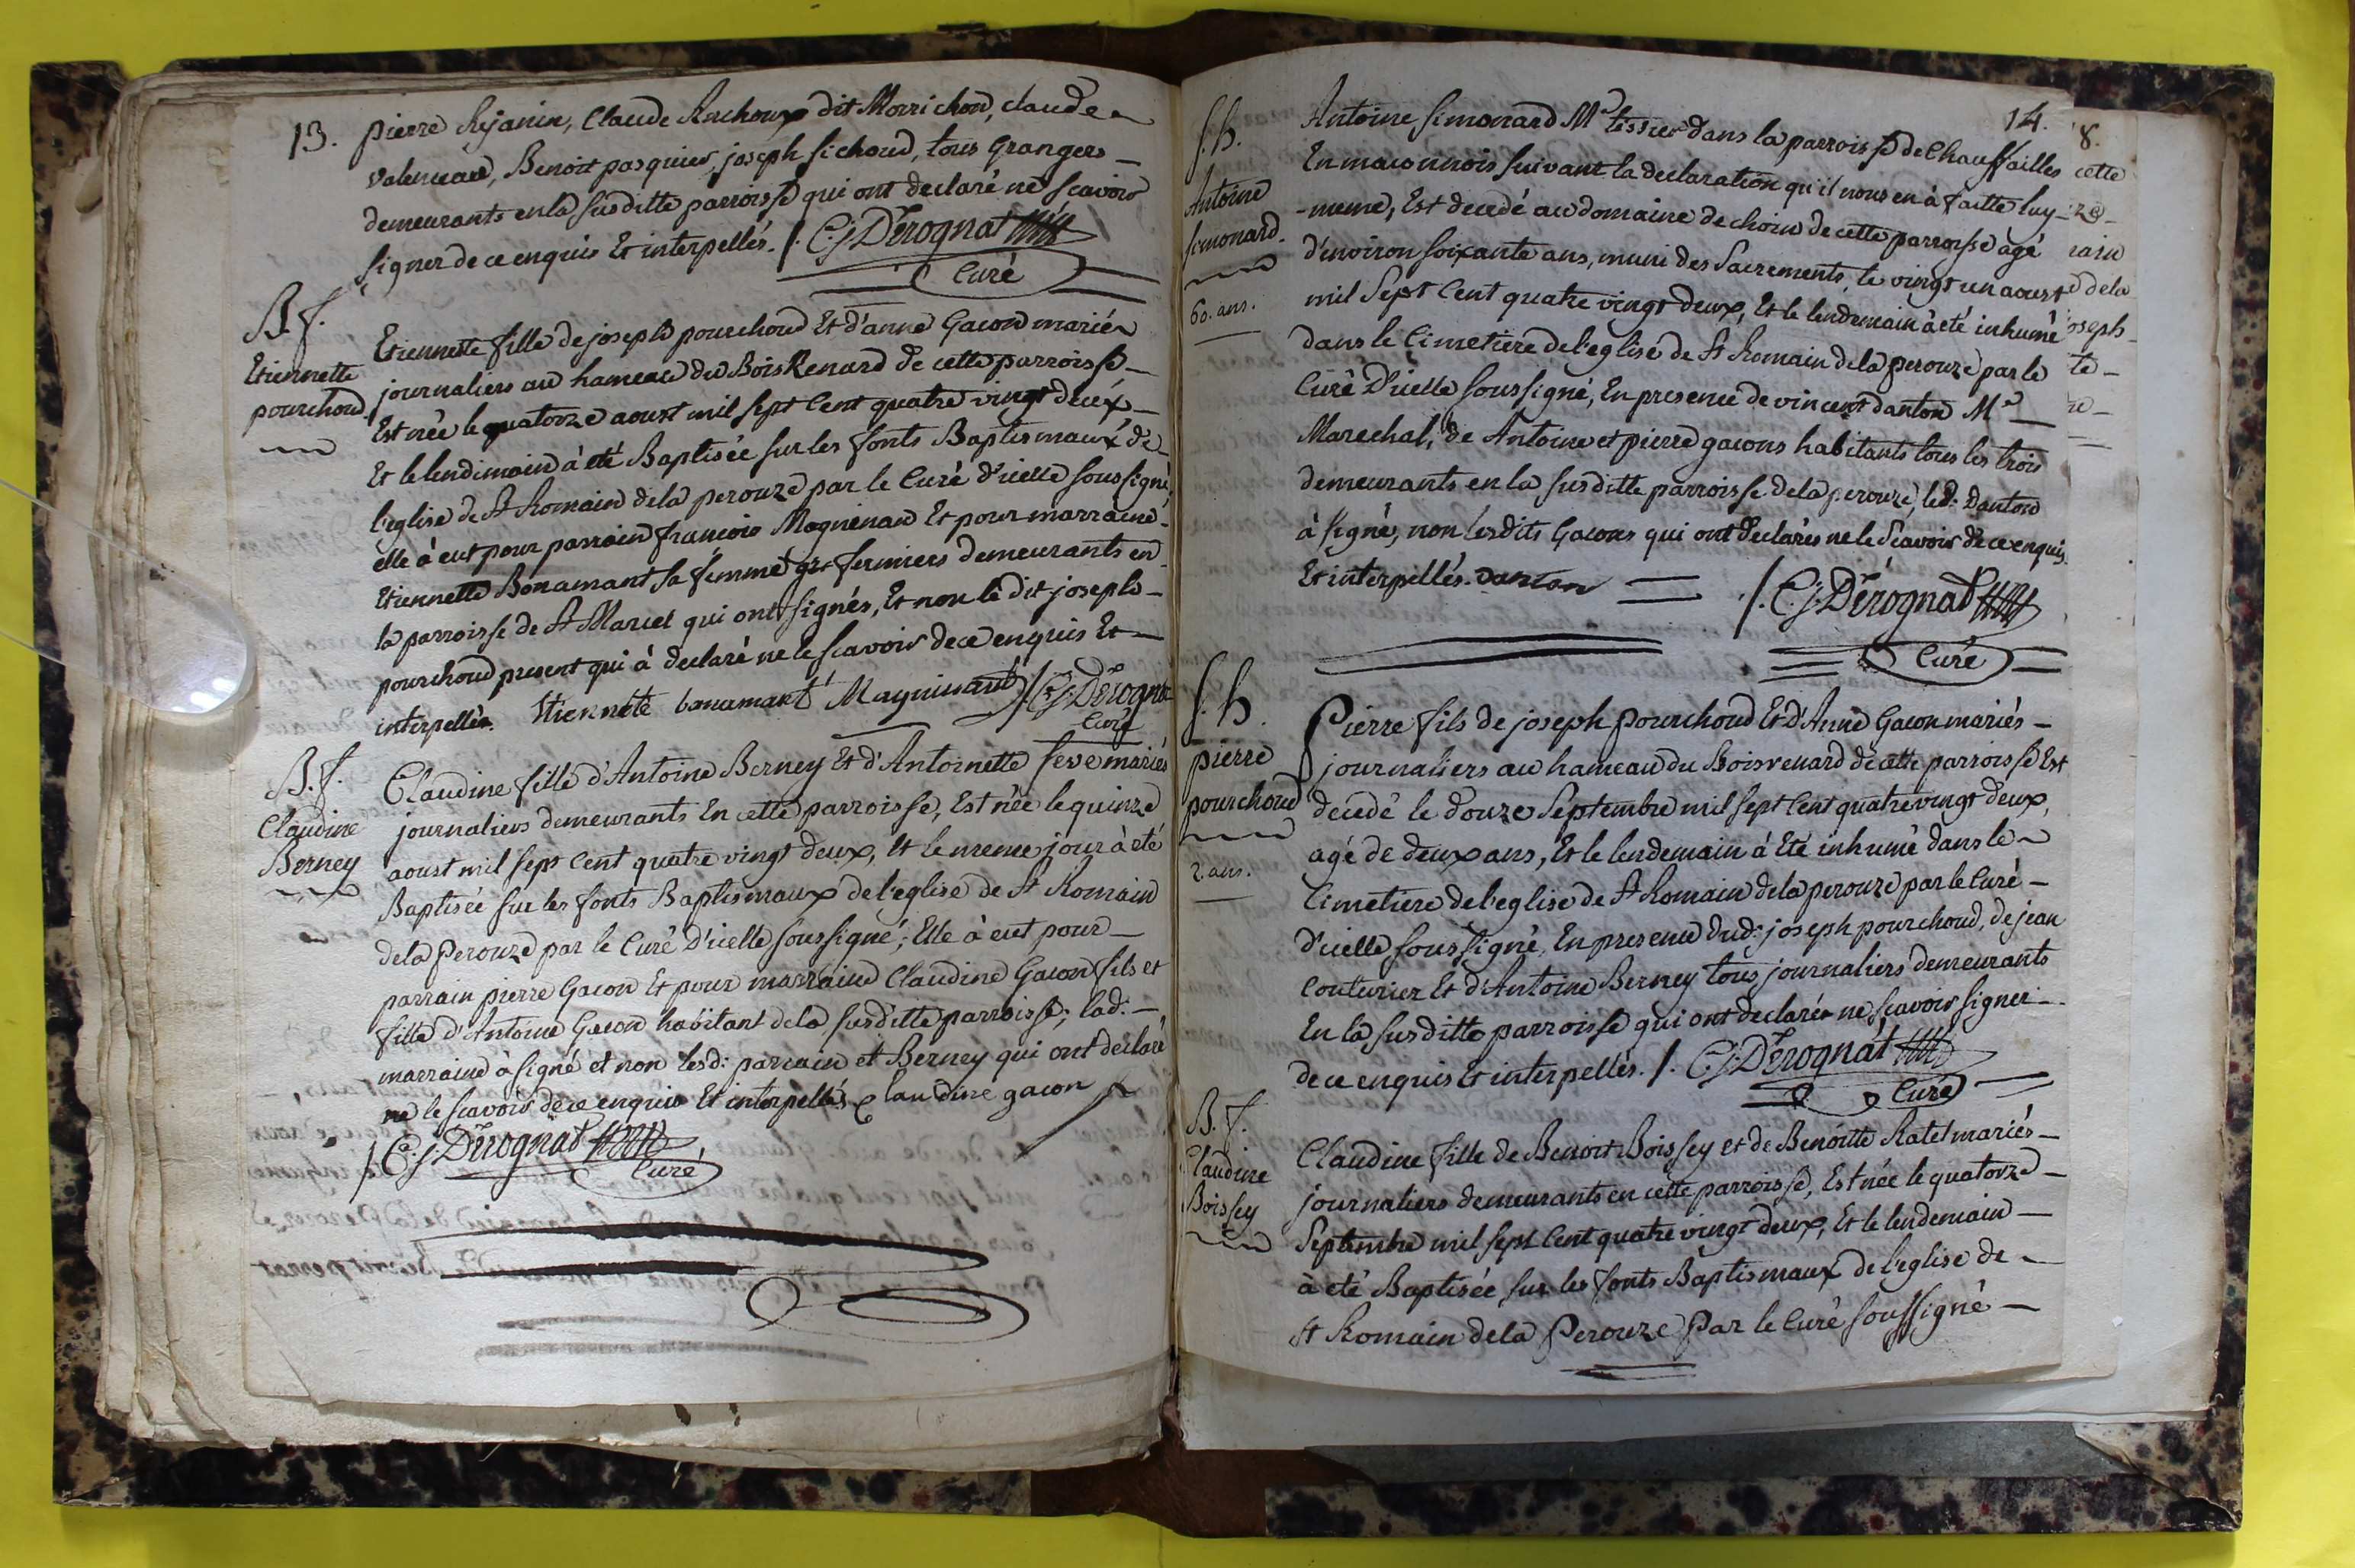 13.
pierre Rejanin, Claude Auchoux dit Morrichon, claude
demeurants en la susditte parroisse qui ont declaré ne scavoir
signer de ce enquis Et interpellés. /. C. J. Dérognat
Curé
B. f.
Etiennette
pourchoud
Etiennette fille de joseph pourchoud Et d'anne Gacon mariés
journaliers au hameau du Bois Renard de cette parroisse
Est née le quatorze aoust mil sept Cent quatre vingt deux
Et le lendemain à eté Baptisée sur les fonts Baptismaux de
l'eglise de St Romain dela perouze par le Curé d'icelle soussigné
elle à eut pour parrain francois Magninand Et pour marraine
Etiennette Bonamant sa femme grs fermiers demeurants en
la parroisse de St Marcel qui ont signés, Et non le dit joseph
pourchoud present qui à declaré ne le scavoir de ce enquis Et
interpellés. Etiennete bonamant Magninand /. C. J. Dérognat
Curé
B. f.
Claudine
Berney
Claudine fille d'Antoine Berney Et d'Antoinette feve mariés
journaliers demeurants En cette parroisse, Est née le quinze
aoust mil sept Cent quatre vingt deux, Et le meme jour à eté
Baptisée sur les fonts Baptismaux de l'eglise de St Romain
dela Perouze par le Curé d'icelle soussigné; Elle à eut pour
parrain pierre Gacon Et pour marraine Claudine Gacon fils et
fille d'Antoine Gacon habitant dela susditte parroisse; lad:
marraine à signé et non lesd: parrain et Berney qui ont declaré
ne le scavoir de ce enquis Et interpellés claudine gacon
/ C. J. Dérognat
Curé
14.
S. h.
Antoine
simonard.
60. ans.
Antoine simonard Me tissier dans la parroisse de Chauffailles
En maconnois suivant la declaration qu'il nous en à faitte luy
-meme, Est decedé au domaine de choin de cette parroisse agé
d'environ soixante ans, muni des Sacrements, le vingt un aoust
mil Sept Cent quatre vingt deux, Et le lendemain à eté inhumé
dans le Cimetiere de l'eglise de St Romain dela perouze par le
Curé D'icelle soussigné, En presence de vincent danton Me
Marechal, de Antoine et pierre gacons habitants tous les trois
demeurants en la susditte parroisse dela perouze, led: Danton
à signé, non lesdits Gacons qui ont declarés ne le scavoir de ce enquis
Et interpellés. Danton /. C. J. Dérognat
Curé
S. h.
pierre
pourchoud
2. ans.
Pierre fils de joseph pourchoud Et d'Anne Gacon mariés
journaliers au hameau du Boisrenard de cette parroisse Est
decedé le douze Septembre mil sept Cent quatre vingt deux,
agé de deux ans, Et le lendemain à Eté inhumé dans le
Cimetiere de l'eglise de St Romain dela perouze par le Curé
d'icelle soussigné, En presence dud: joseph pourchoud, de jean
Couturier Et d'Antoine Berney tous journaliers demeurants
En la susditte parroisse qui ont declarés ne scavoir signer
de ce enquis Et interpellés. /. C. J. Dérognat
Curé
B. f.
Claudine
Boissey
Claudine fille de Benoit Boissey et de Benoitte Ratet mariés
journaliers demeurants en cette parroisse, Est née le quatorze
Septembre mil sept Cent quatre vingt deux, Et le lendemain
à eté Baptisée sur les fonts Baptismaux de l'eglise de
St Romain dela Perouze Par le Curé soussigné
8.
cette
dela
joseph